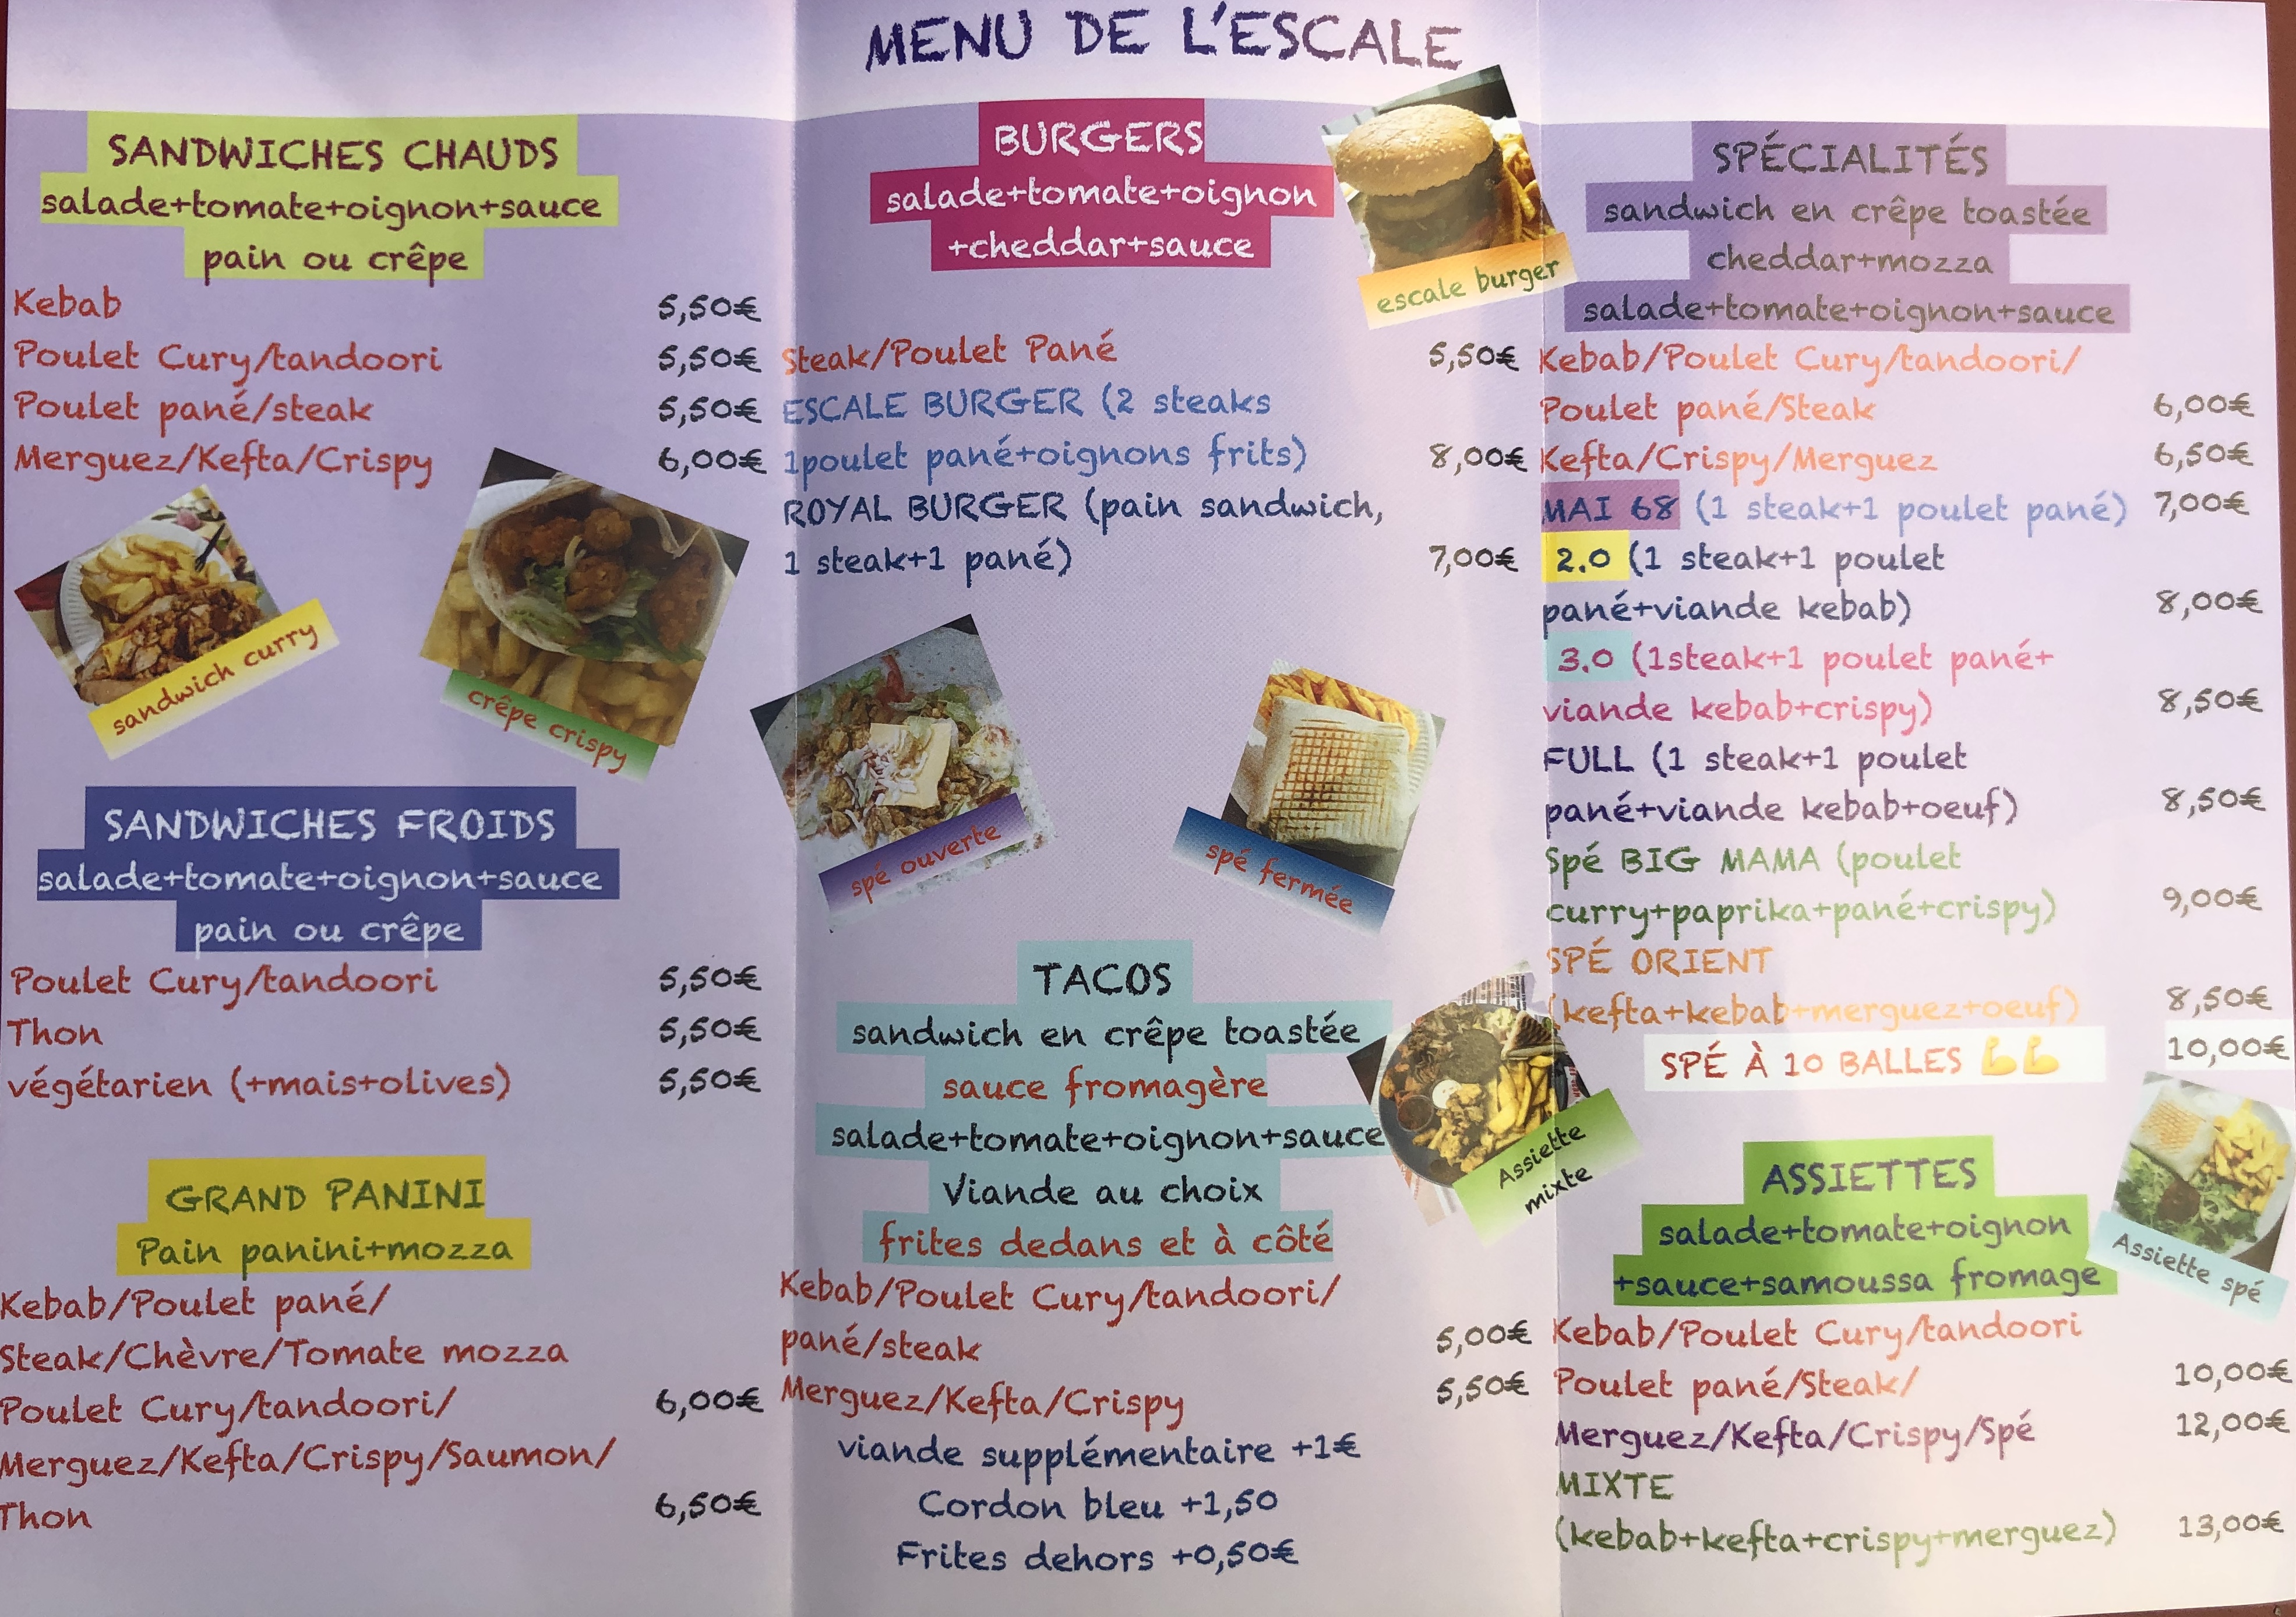 MENU DE L'ESCALE
SANDWICHES CHAUDS
salade+tomate+oignon+sauce
pain ou crêpe
Kebab 5,50€
Poulet Cury/tandoori 5,50€
Poulet pané/steak 5,50€
Merguez/Kefta/Crispy 6,00€
sandwich curry
crêpe crispy
SANDWICHES FROIDS
salade+tomate+oignon+sauce
pain ou crêpe
Poulet Cury/tandoori 5,50€
Thon 5,50€
végétarien (+mais+olives) 5,50€
GRAND PANINI
Pain panini+mozza
Kebab/Poulet pané/
Steak/Chèvre/Tomate mozza
Poulet Cury/tandoori/ 6,00€
Merguez/Kefta/Crispy/Saumon/
Thon 6,50€
BURGERS
salade+tomate+oignon
+cheddar+sauce
escale burger
Steak/Poulet Pané 5,50€
ESCALE BURGER (2 steaks
1poulet pané+oignons frits) 8,00€
ROYAL BURGER (pain sandwich,
1 steak+1 pané) 7,00€
spé ouverte
spé fermée
TACOS
sandwich en crêpe toastée
sauce fromagère
salade+tomate+oignon+sauce
Viande au choix
frites dedans et à côté
Kebab/Poulet Cury/tandoori/
pané/steak 5,00€
Merguez/Kefta/Crispy 5,50€
viande supplémentaire +1€
Cordon bleu +1,50
Frites dehors +0,50€
Assiette
mixte
SPÉCIALITÉS
sandwich en crêpe toastée
cheddar+mozza
salade+tomate+oignon+sauce
Kebab/Poulet Cury/tandoori/
Poulet pané/Steak 6,00€
Kefta/Crispy/Merguez 6,50€
MAI 68 (1 steak+1 poulet pané) 7,00€
2.0 (1 steak+1 poulet
pané+viande kebab) 8,00€
3.0 (1steak+1 poulet pané+
viande kebab+crispy) 8,50€
FULL (1 steak+1 poulet
pané+viande kebab+oeuf) 8,50€
Spé BIG MAMA (poulet
curry+paprika+pané+crispy) 9,00€
SPÉ ORIENT
(kefta+kebab+merguez+oeuf) 8,50€
SPÉ À 10 BALLES 💪💪 10,00€
ASSIETTES
salade+tomate+oignon
+sauce+samoussa fromage
Assiette spé
Kebab/Poulet Cury/tandoori
Poulet pané/Steak/ 10,00€
Merguez/Kefta/Crispy/Spé 12,00€
MIXTE
(kebab+kefta+crispy+merguez) 13,00€